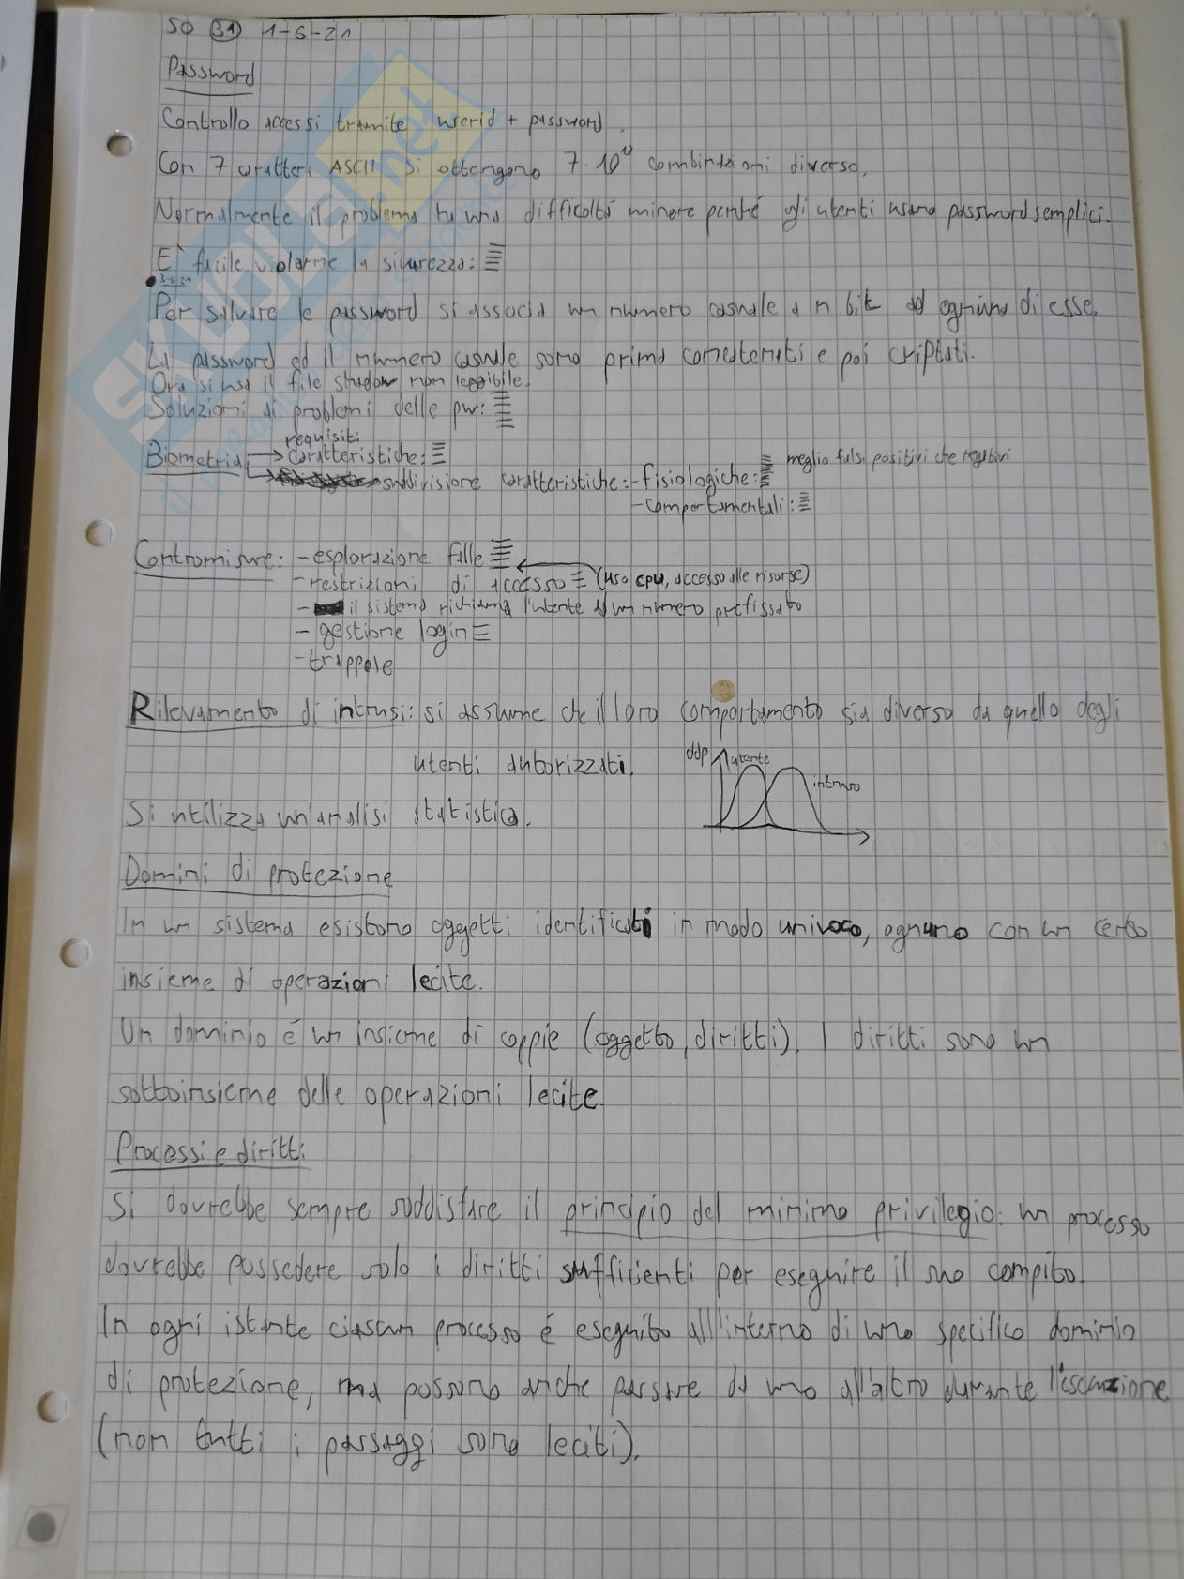 SO 31 1-6-21
Password
Controllo accessi tramite userid + password.
Con 7 caratteri ASCII si ottengono 7·10 combinazioni diverse.
Normalmente il problema ha una difficoltà minore perché gli utenti usano password semplici.
E' facile violarne la sicurezza:
Per salvare le password si associa un numero casuale a n bit ad ognuna di esse.
La password ed il numero casuale sono prima concatenati e poi criptati.
Ora si usa il file shadow non leggibile.
Soluzioni di problemi delle pw:
requisiti
Biometria caratteristiche: meglio falsi positivi che negativi
suddivisione caratteristiche: - fisiologiche:
- comportamentali:
Contromisure: - esplorazione falle
- restrizioni di accesso (uso CPU, accesso alle risorse)
- il sistema richiama l'utente ad un numero prefissato
- gestione login
- trappole
Rilevamento di intrusi: si assume che il loro comportamento sia diverso da quello degli
utenti autorizzati. ddp utente
intruso
Si utilizza un'analisi statistica.
Domini di protezione
In un sistema esistono oggetti identificati in modo univoco, ognuno con un certo
insieme di operazioni lecite.
Un dominio é un insieme di coppie (oggetto, diritti). I diritti sono un
sottoinsieme delle operazioni lecite
Processi e diritti
Si dovrebbe sempre soddisfare il principio del minimo privilegio: un processo
dovrebbe possedere solo i diritti sufficienti per eseguire il suo compito.
In ogni istante ciascun processo é eseguito all'interno di uno specifico dominio
di protezione, ma possono anche passare da uno all'altro durante l'esecuzione
(non tutti i passaggi sono leciti).